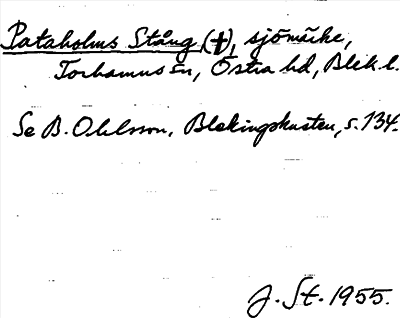 Pataholms Stång (†), sjömärke,
Torhamns sn, Östra hd, Blek l.
Se B. Ohlsson, Blekingekusten, s. 134.
J. St. 1955.